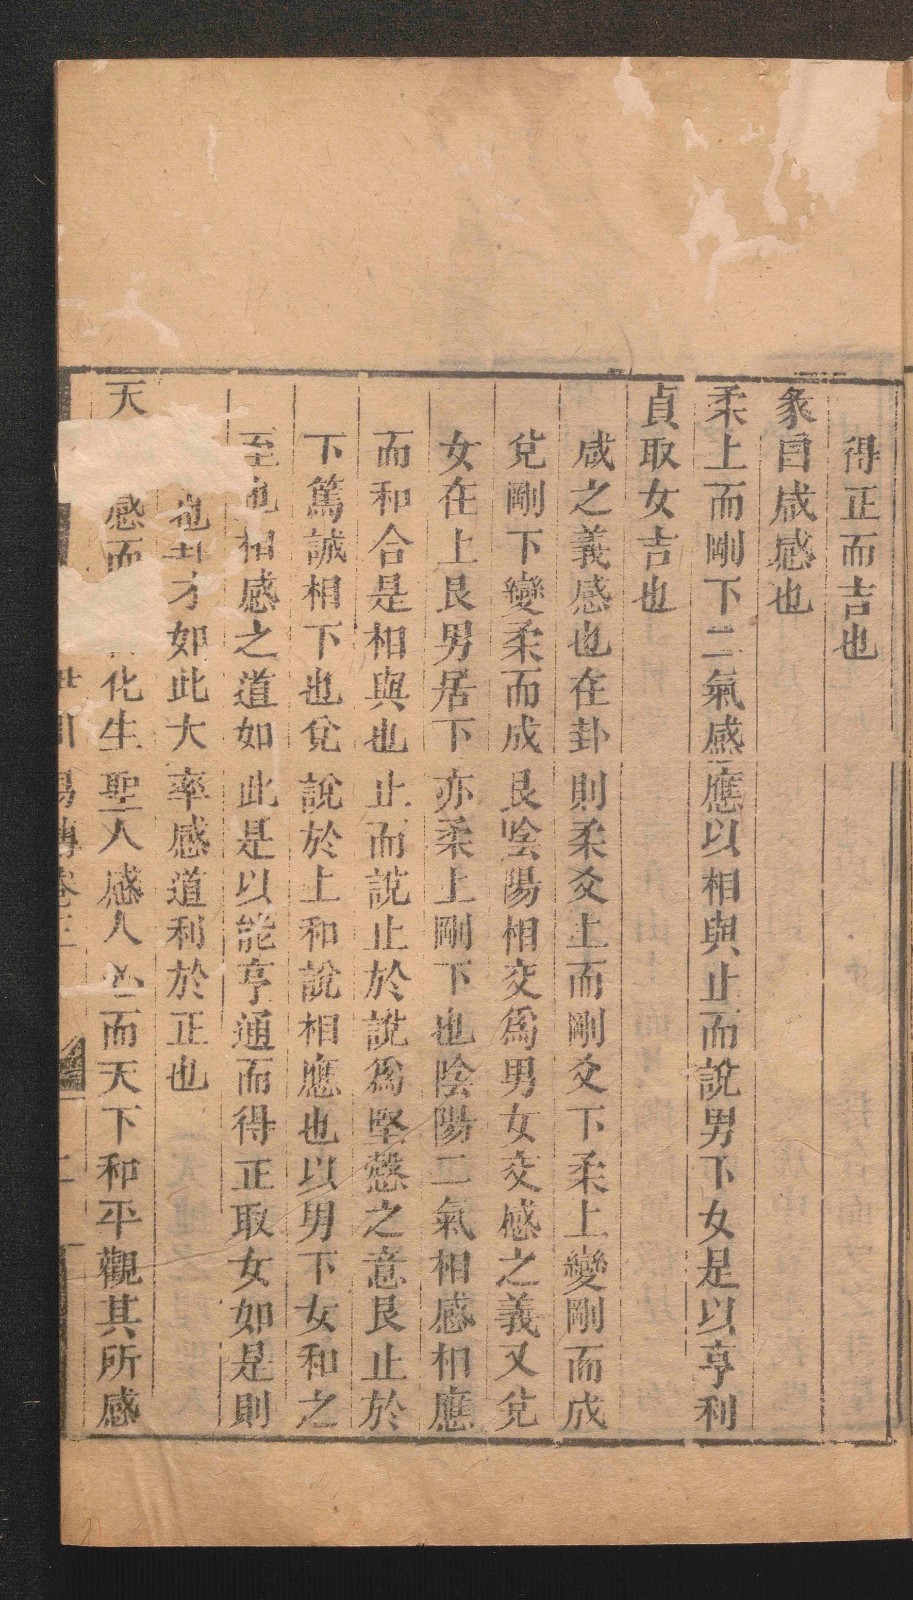 得正而吉也
彖曰咸感也
柔上而剛下二氣感應以相與止而說男下女是以亨利
貞取女吉也
咸之義感也在卦則柔爻上而剛爻下柔上變剛而成
兌剛下變柔而成艮陰陽相交爲男女交感之義又兌
女在上艮男居下亦柔上剛下也陰陽二氣相感相應
而和合是相與也止而說止於說爲堅慤之意艮止於
下篤誠相下也兌說於上和說相應也以男下女和之
至也相感之道如此是以能亨通而得正取女如是則
也卦才如此大率感道利於正也
天感而化生聖人感人心而天下和平觀其所感
易傳卷三
二